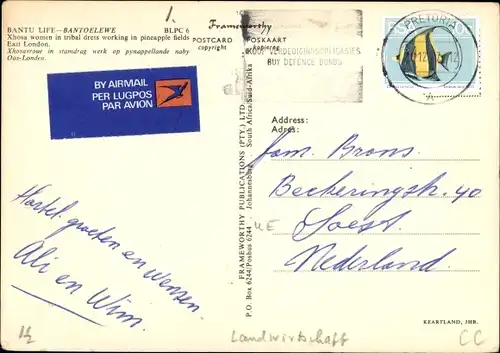 1.
BANTU LIFE—BANTOELEWE BLPC 6
Xhosa women in tribal dress working in pineapple fields
East London.
Xhosavroue in stamdrag werk op pynappellande naby
Oos-Londen.
Frameworthy
POSTCARD POSKAART
copyright kopiereg
KOOP VERDEDIGINGSOBLIGASIES
BUY DEFENCE BONDS
PRETORIA
RSA
BY AIRMAIL
PER LUGPOS
PAR AVION
FRAMEWORTHY PUBLICATIONS (PTY.) LTD.
P. O. Box 6244/Posbus 6244 Johannesburg South Africa/Suid-Afrika
Address:
Adres:
Fam. Brons.
Beckeringstr. 40
Soest.
Nederland.
Hartel. groeten en wensen.
Ali en Wim.
KEARTLAND, JHB.
Landwirtschaft
CC